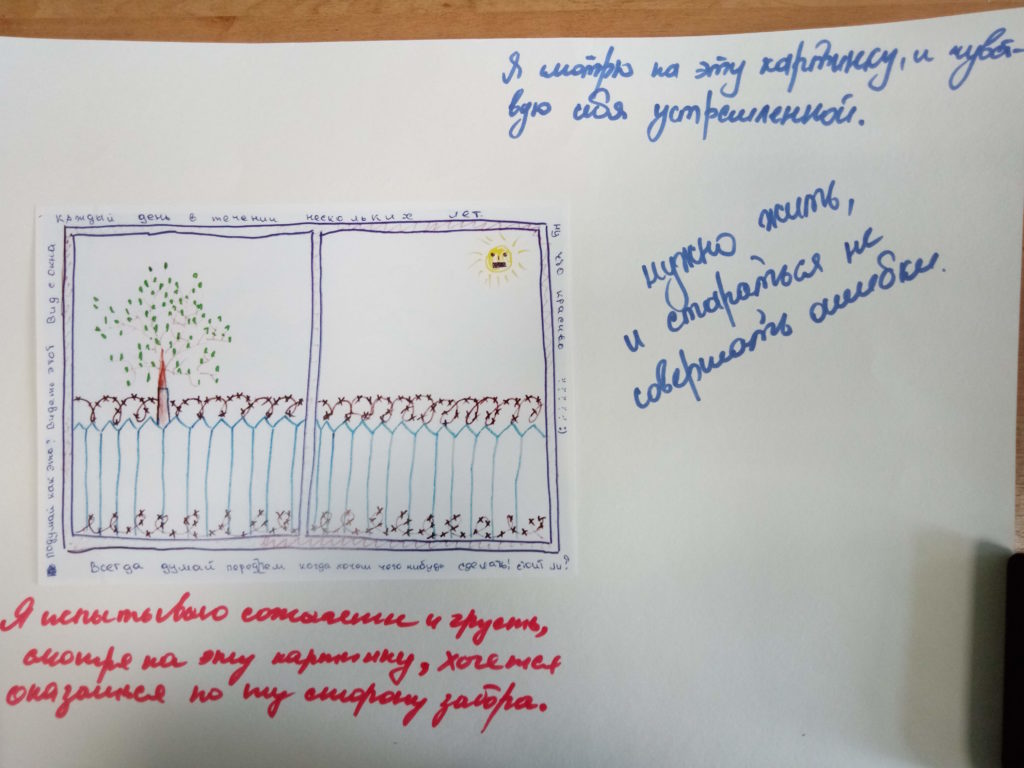 Я смотрю на эту картинку, и чувст-
вую себя устремленной.
нужно жить,
и стараться не
совершать ошибки.
каждый день в течении нескольких лет.
ну что красиво
подумай как это? Видеть этот Вид с окна
Всегда думай передтем когда хочеш чего нибудь сделать! стоит ли?
Я испытываю сожаление и грусть,
смотря на эту картинку, хочется
оказаться по ту сторону забора.